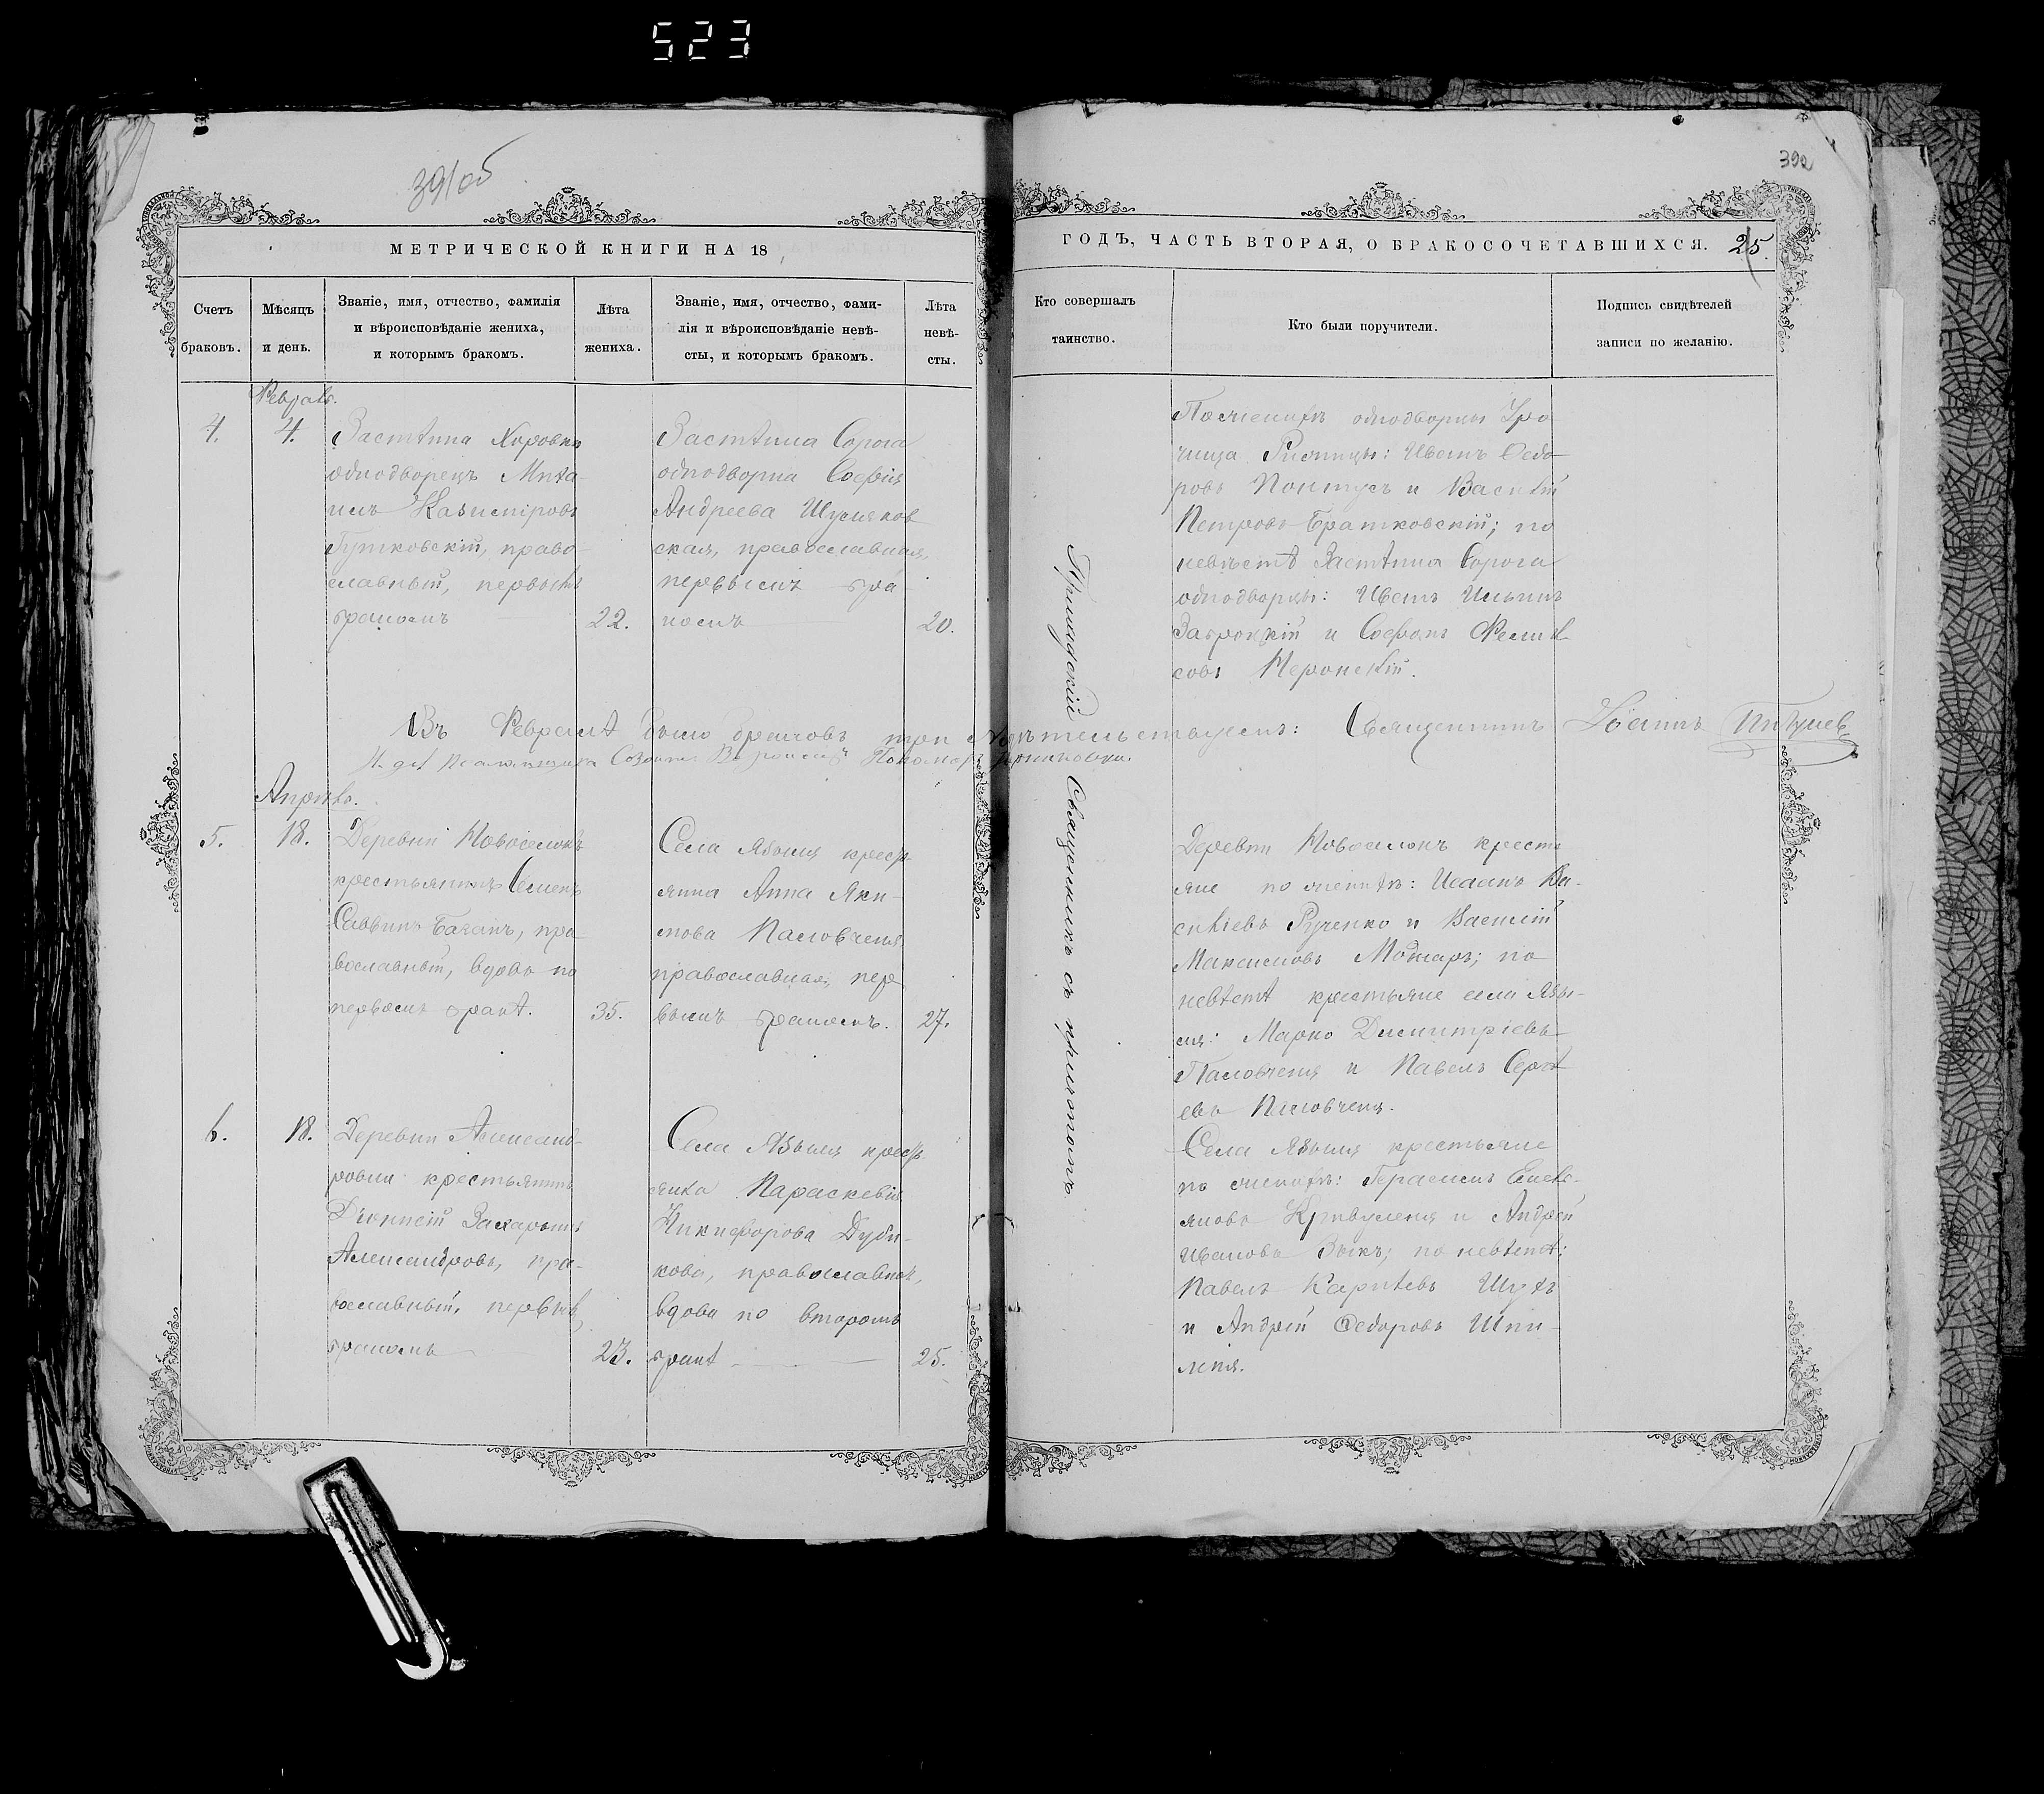 523
391об
392
МЕТРИЧЕСКОЙ КНИГИ НА 18
ГОДЪ, ЧАСТЬ ВТОРАЯ, О БРАКОСОЧЕТАВШИХСЯ. 25.
Счетъ
браковъ.
Мѣсяцъ
и день.
Званіе, имя, отчество, фамилія
и вѣроисповѣданіе жениха,
и которымъ бракомъ.
Лѣта
жениха.
Званіе, имя, отчество, фами-
лія и вѣроисповѣданіе невѣ-
сты, и которымъ бракомъ.
Лѣта
невѣ-
сты.
Кто совершалъ
таинство.
Кто были поручители.
Подпись свидѣтелей
записи по желанію.
Февраль.
4.
4.
Застѣнка Хоровки
однодворецъ Миха-
илъ Казиміровъ
Гутковскій, право-
славный, первымъ
бракомъ
22.
Застѣнка Сорога
однодворка Софія
Андреева Шумяков
ская, православная,
первымъ бра
комъ
20.
По женихѣ однодворцы Уро
чища
ровъ и Василій
Петровъ Братковскій; по
невѣстѣ Застѣнка Сорога
однодворцы: Ильинъ
и
совъ
Въ Февралѣ было браковъ три Свидѣтельствуемъ: Священникъ Іоаннъ
Апрѣль.
5.
18.
Деревни Новоселокъ
крестьянинъ Семенъ
Саввинъ Баканъ, пра
вославный, вдовъ по
первомъ бракѣ.
35.
Села Язвинъ кресть
янка Анна Яки-
мова Паловченя
православная, пер
вымъ бракомъ.
27.
Деревни Новоселокъ кресть
яне по женихѣ: Исаакъ Ва-
силіевъ Рученко и Василій
Максимовъ ; по
невѣстѣ крестьяне села Язви-
нъ: Марко Димитріевъ
Паловченя и Павелъ Сергѣ
евъ Паловченя.
6.
18.
Деревни Александ-
ровки крестьянинъ
Діонисій Захарьинъ
Александровъ, пра-
вославный, первымъ
бракомъ
23.
Села Язвинъ кресть
янка Параскевія
Никифорова Дуби-
кова, православная,
вдова по второмъ
бракѣ
25.
Села Язвинъ крестьяне
по женихѣ: Герасимъ Емель-
яновъ Кривуленя и Андрей
Ивановъ Зыкъ; по невѣстѣ:
Павелъ Карпѣевъ
и Андрей Федоровъ Шпи-
леня.
Приходскій Священникъ съ причтомъ